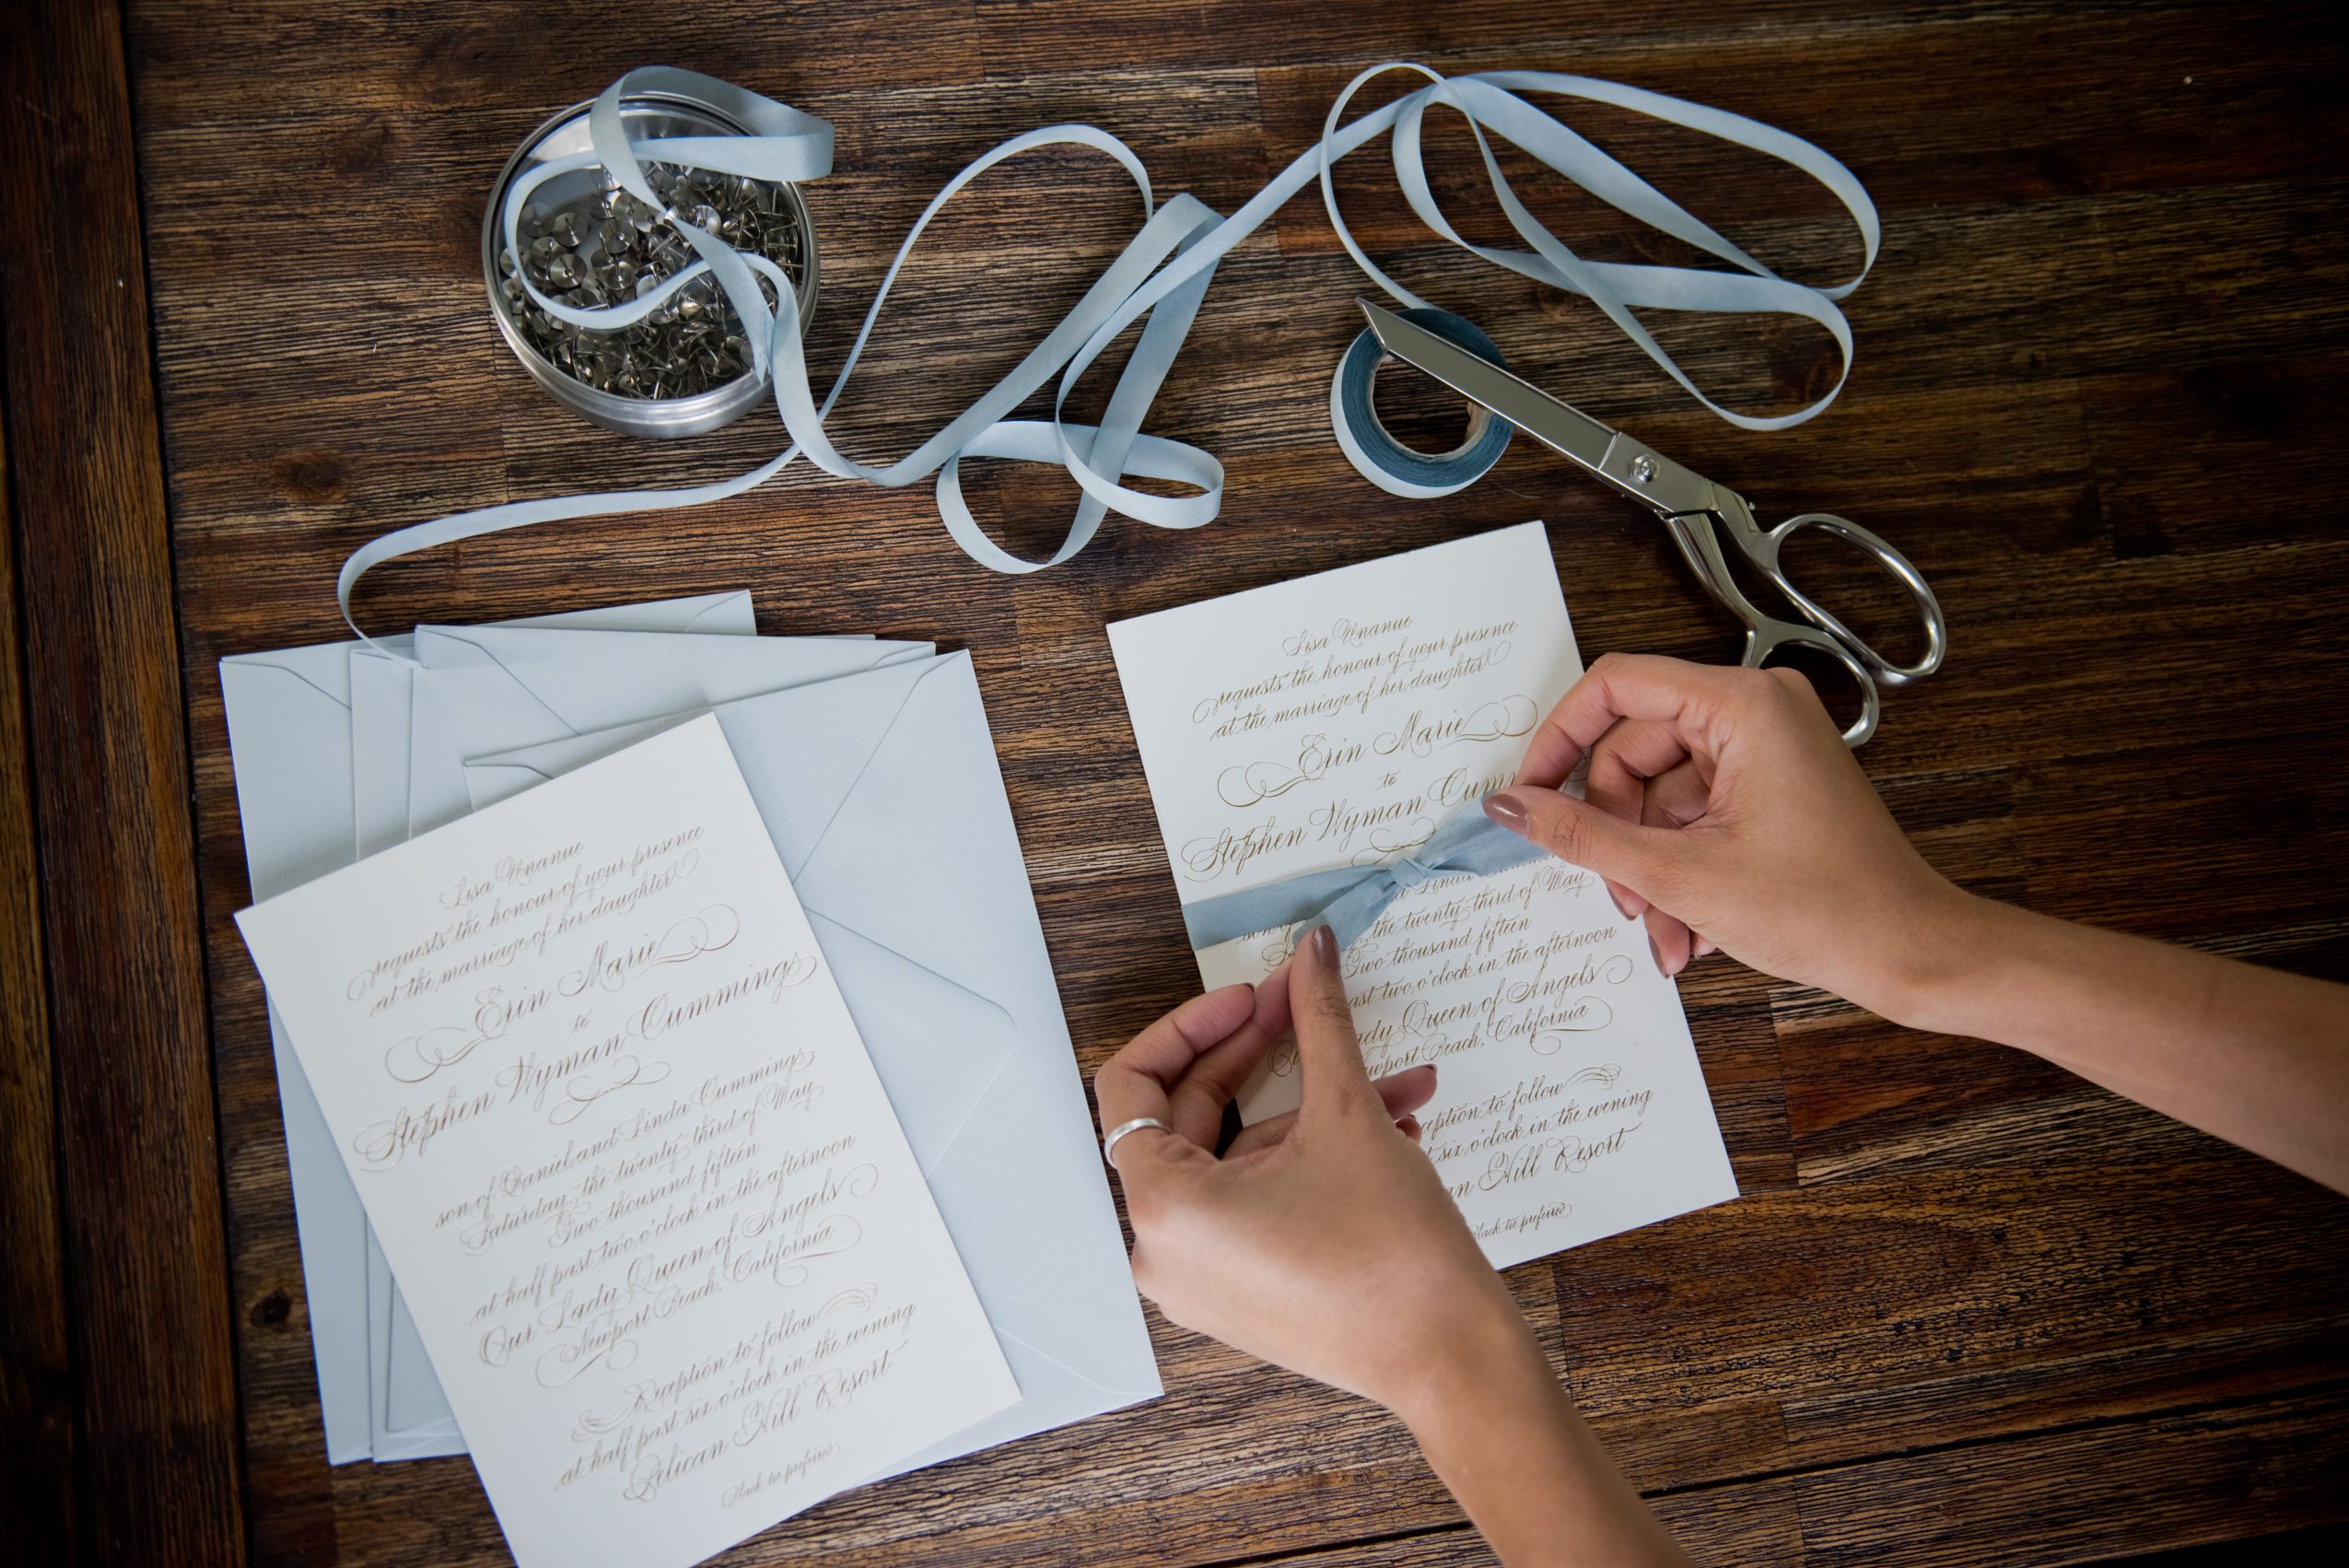 Lisa Unanue
requests the honour of your presence
at the marriage of her daughter
Erin Marie
to
Stephen Wyman Cummings
son of Daniel and Linda Cummings
Saturday, the twenty-third of May
Two thousand fifteen
at half past two o'clock in the afternoon
Our Lady Queen of Angels
Newport Beach, California
Reception to follow
at half past six o'clock in the evening
Pelican Hill Resort
Black tie preferred
Lisa Unanue
requests the honour of your presence
at the marriage of her daughter
Erin Marie
to
Stephen Wyman Cumm
son of Linda
the twenty-third of May
Two thousand fifteen
past two o'clock in the afternoon
ady Queen of Angels
Newport Beach, California
ception to follow
t six o'clock in the evening
an Hill Resort
Black tie preferred